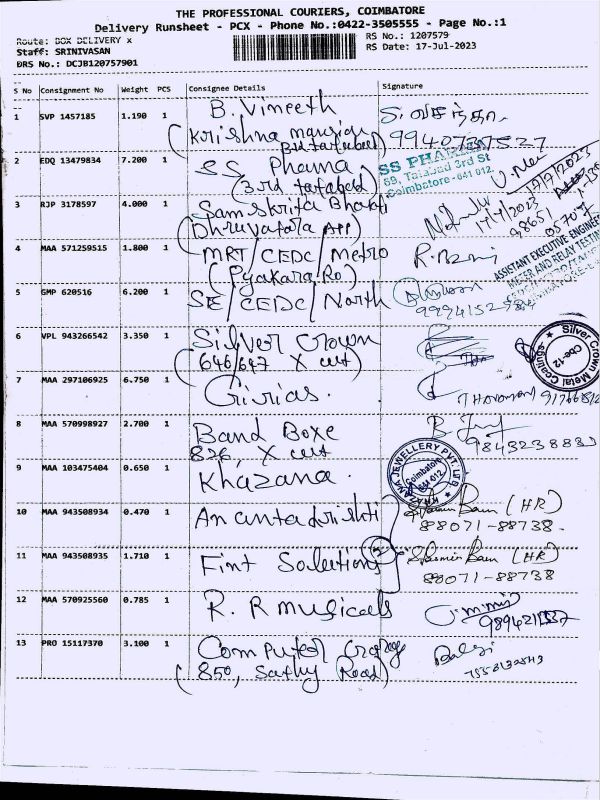 THE PROFESSIONAL COURIERS, COIMBATORE
Delivery Runsheet - PCX - Phone No.:0422-3505555 - Page No.:1
Route: BOX DELIVERY x
RS No.: 1207579
Staff: SRINIVASAN
RS Date: 17-Jul-2023
DRS No.: DCJB120757901
S No Consignment No Weight PCS Consignee Details Signature
1 SVP 1457185 1.190 1 B. Vineeth
(Krishna mansion
9940737527
2 EDQ 13479834 7.200 1 SS Pharma
(3rd tatabad)
SS PHARMA
69, Tatabad 3rd St
Coimbatore - 641 012
17/7/2023
3 RJP 3178597 4.000 1 Samskrita Bharati
(Dhruvatara App)
17/7/2023
98651
05707
4 MAA 571259515 1.800 1 MRT/CEDC/Metro
(Pyakara Ro)
R. Mani
ASSISTANT EXECUTIVE ENGINEER
METER AND RELAY TESTING
5 GMP 620516 6.200 1 SE/CEDC/North
6 VPL 943266542 3.350 1 Silver Crown
(646/647 X cut)
Silver Crown Metal Coatings
Cbe-12
7 MAA 297106925 6.750 1 Girias.
8 MAA 570998927 2.700 1 Band Boxe
826, X cut
9843238830
9 MAA 103475404 0.650 1 Khazana.
KHAZANA JEWELLERY PVT. LTD.
Coimbatore
641 012
10 MAA 943508934 0.470 1 Anantadrishti
(HR)
88071-88738.
11 MAA 943508935 1.710 1 Fint Solutions
2
(HR)
88071-88738
12 MAA 570925560 0.785 1 R. R musicals
13 PRO 15117370 3.100 1 Computer Garage
(850, Sathy Road)
Balaji